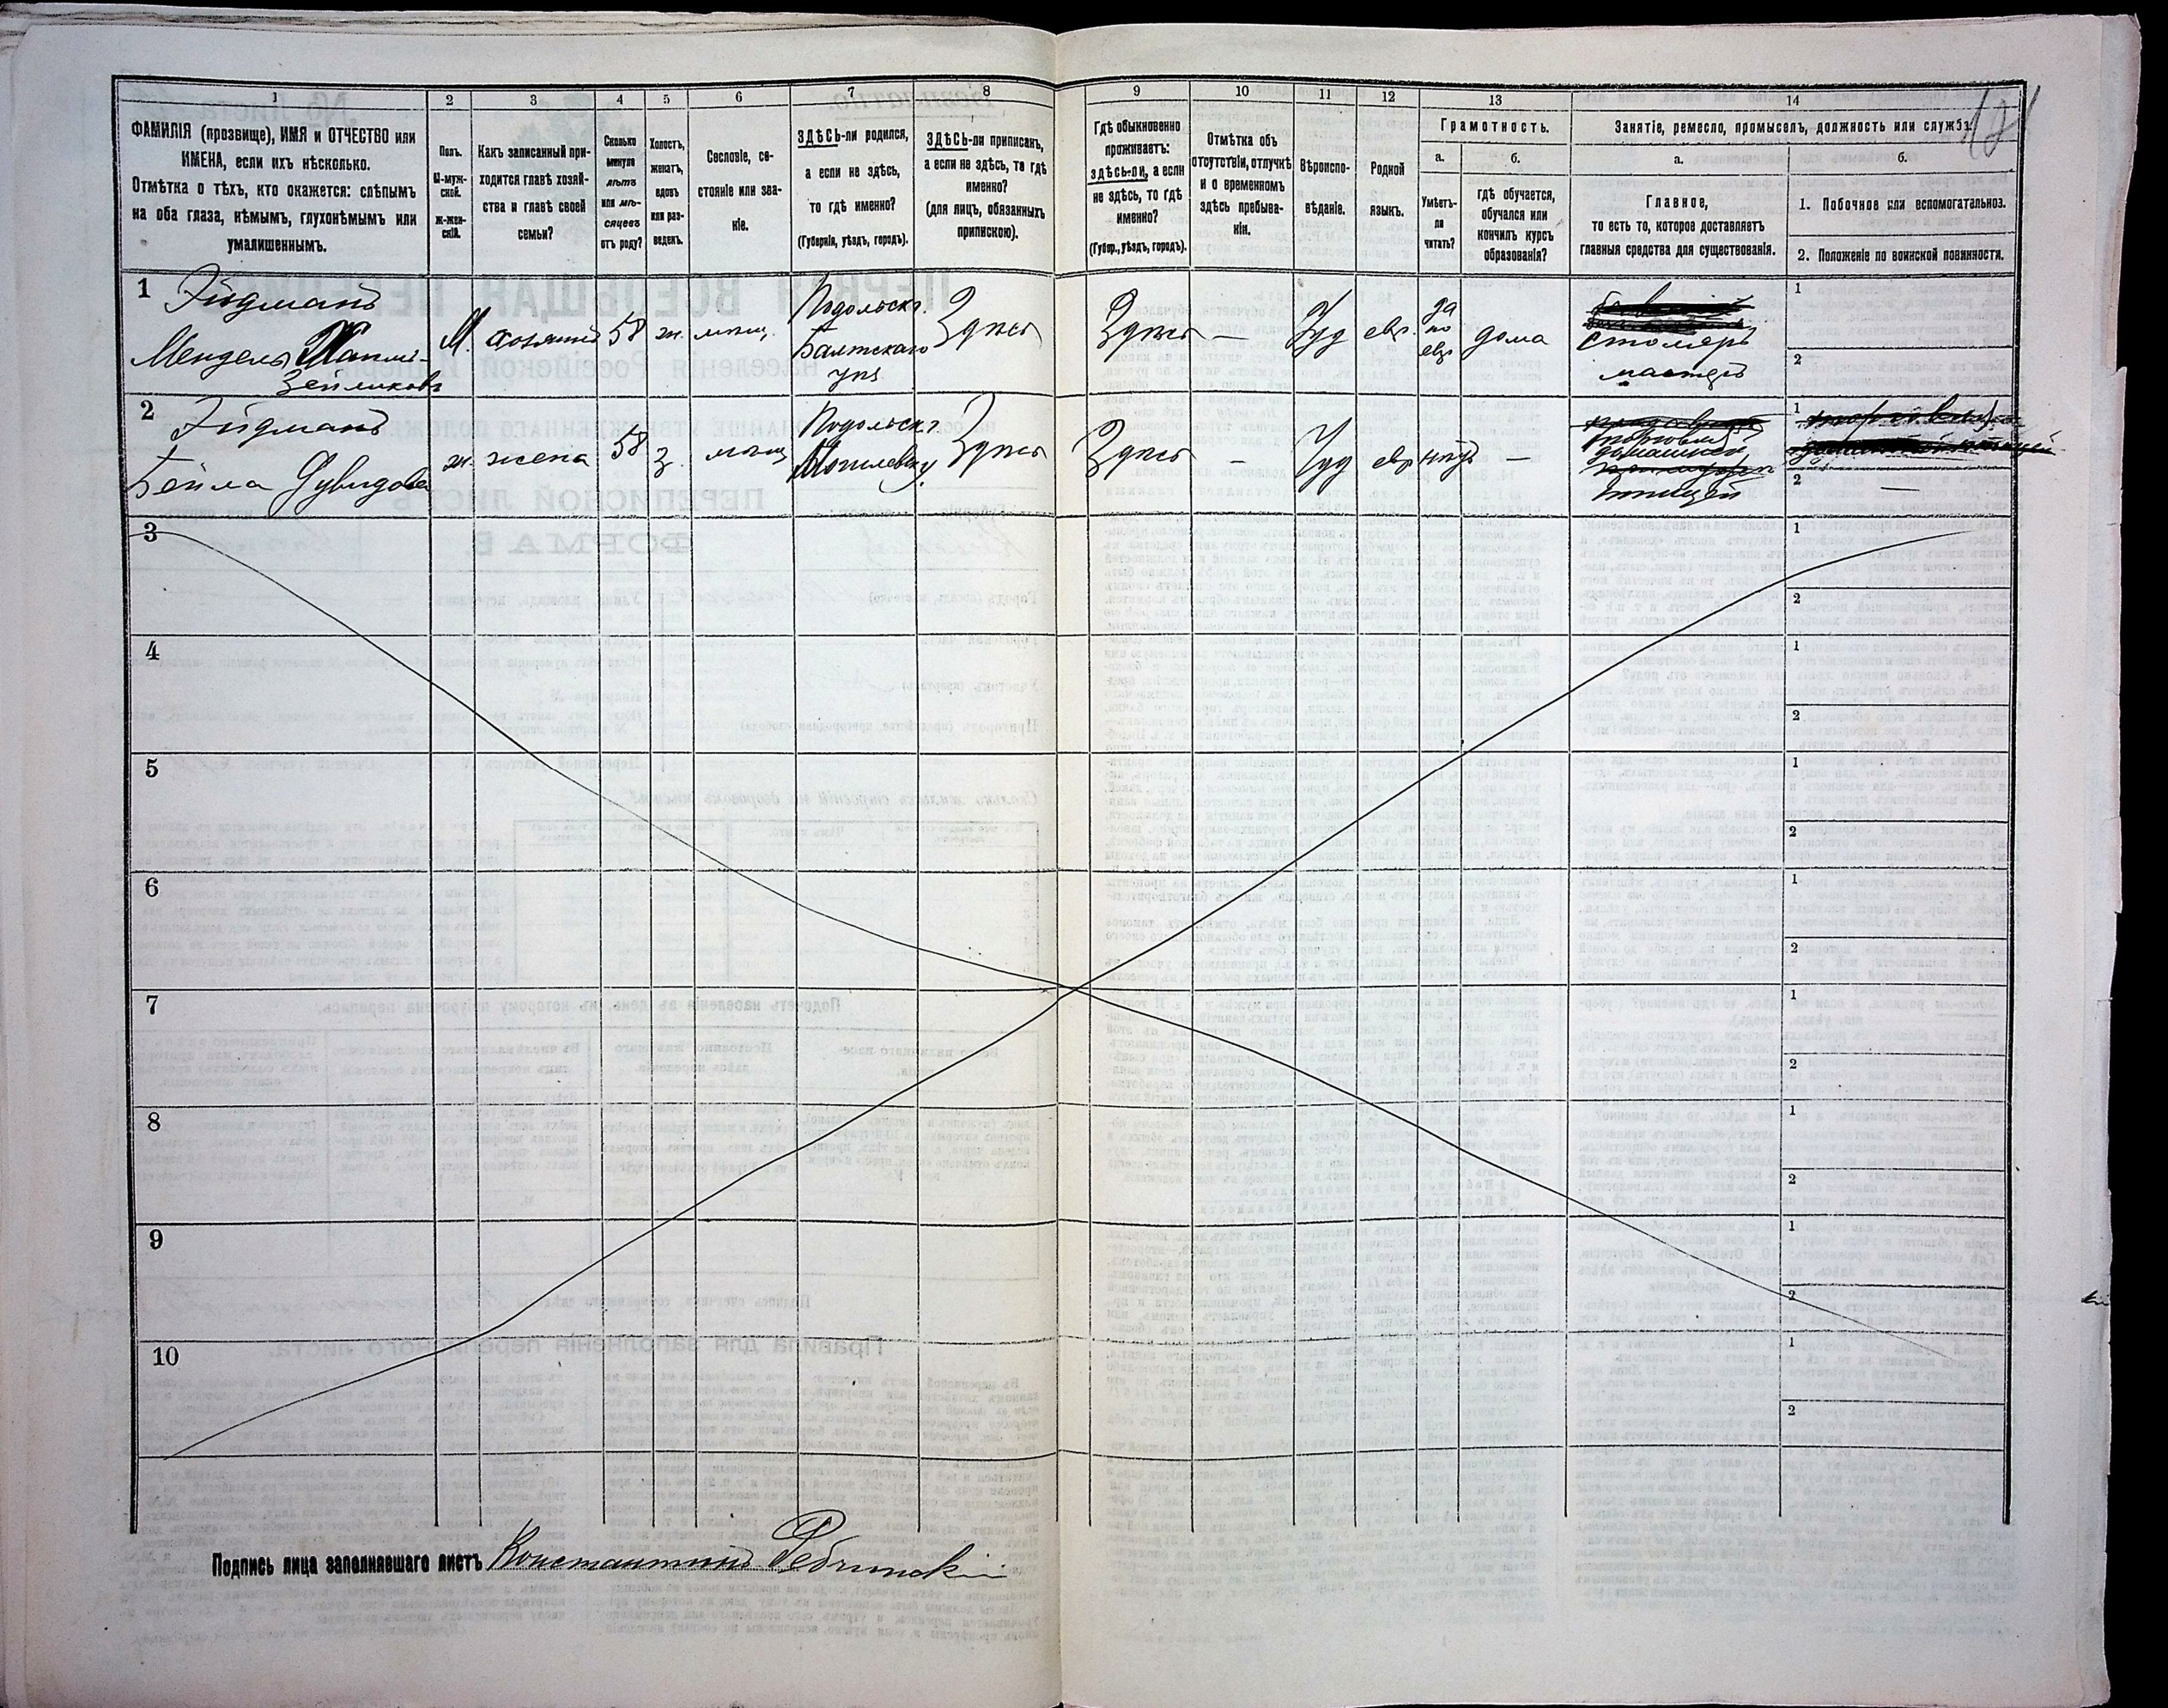 1 2 3 4 5 6 7 8 9 10 11 12 13 14
ФАМИЛІЯ (прозвище), ИМЯ и ОТЧЕСТВО или
ИМЕНА, если ихъ нѣсколько.
Отмѣтка о тѣхъ, кто окажется: слѣпымъ
на оба глаза, нѣмымъ, глухонѣмымъ или
умалишеннымъ.
Полъ.
М-муж-
ской.
Ж-жен-
скій.
Какъ записанный при-
ходится главѣ хозяй-
ства и главѣ своей
семьи?
Сколько
минуло
лѣтъ
или мѣ-
сяцевъ
отъ роду?
Холостъ,
женатъ,
вдовъ
или раз-
веденъ.
Сословіе, со-
стояніе или зва-
ніе.
ЗДѢСЬ-ли родился,
а если не здѣсь,
то гдѣ именно?
(Губернія, уѣздъ, городъ).
ЗДѢСЬ-ли приписанъ,
а если не здѣсь, то гдѣ
именно?
(для лицъ, обязанныхъ
припискою).
Гдѣ обыкновенно
проживаетъ:
здѣсь-ли, а если
не здѣсь, то гдѣ
именно?
(Губер., уѣздъ, городъ).
Отмѣтка объ
отсутствіи, отлучкѣ
и о временномъ
здѣсь пребыва-
ніи.
Вѣроиспо-
вѣданіе.
Родной
языкъ.
Грамотность.
а.
Умѣетъ-
ли
читать?
б.
гдѣ обучается,
обучался или
кончилъ курсъ
образованія?
Занятіе, ремесло, промыселъ, должность или служба.
а.
Главное,
то есть то, которое доставляетъ
главныя средства для существованія.
б.
1. Побочное или вспомогательное.
2. Положеніе по воинской повинности.
1
Мендель
М. хозяинъ 58 ж. мѣщ.
Подольск.
Балтскаго
Здѣсь
Здѣсь — Іуд евр.
да
по
евр
дома
Столяръ
мастеръ
1
2
2
Бейла Дувидова
ж. жена 58 З. мѣщ
Подольск.
Здѣсь
Здѣсь — Іуд евр нѣтъ —
птицей
1
2 —
3 1
2
4 1
2
5 1
2
6 1
2
7 1
2
8 1
2
9 1
2
10 1
2
Подпись лица заполнявшаго листъ Константинъ